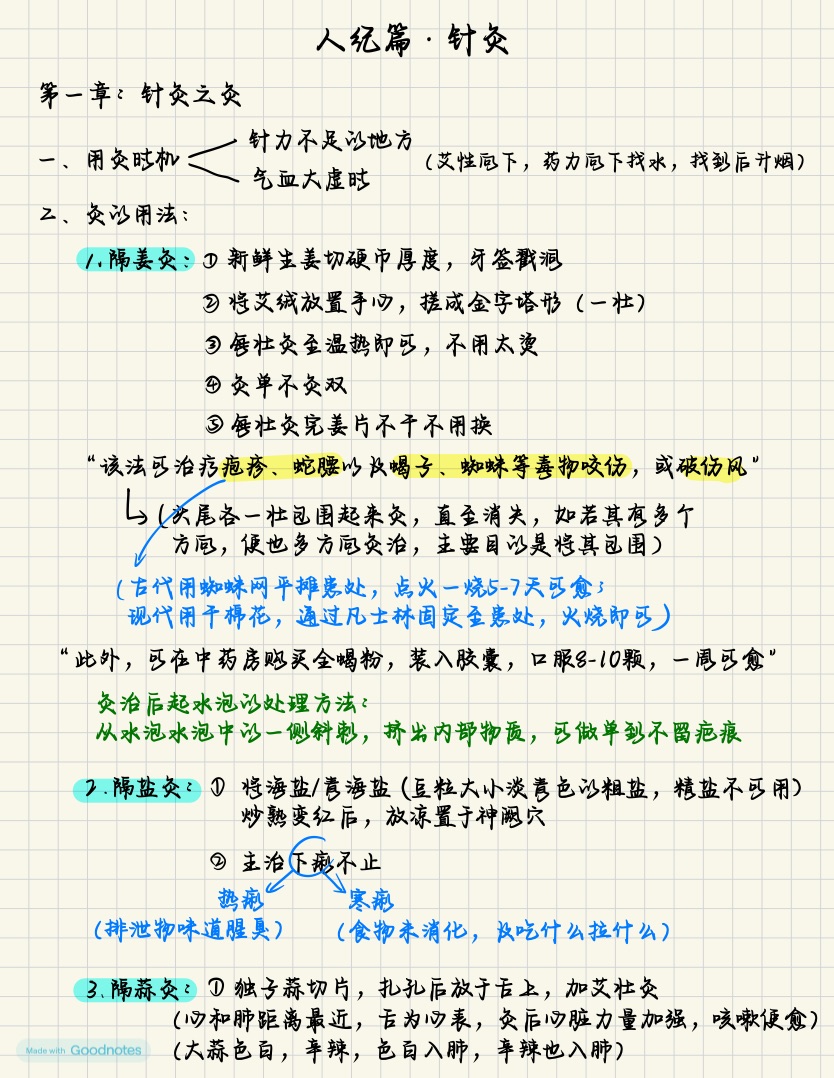 人纪篇·针灸
第一章：针灸之灸
一、用灸时机
针力不足的地方
气血大虚时
（艾性向下，药力向下找水，找到后升烟）
二、灸的用法：
1.隔姜灸：① 新鲜生姜切硬币厚度，牙签戳洞
② 将艾绒放置手心，搓成金字塔形（一壮）
③ 每壮灸至温热即可，不用太烫
④ 灸单不灸双
⑤ 每壮灸完姜片不干不用换
“该法可治疗疱疹、蛇腰以及蝎子、蜘蛛等毒物咬伤，或破伤风”
（头尾各一壮包围起来灸，直至消失，如若其有多个
方向，便也多方向灸治，主要目的是将其包围）
（古代用蜘蛛网平摊患处，点火一烧5-7天可愈；
现代用干棉花，通过凡士林固定至患处，火烧即可）
“此外，可在中药房购买全蝎粉，装入胶囊，口服8-10颗，一周可愈”
灸治后起水泡的处理方法：
从水泡水泡中的一侧斜刺，挤出内部物质，可做单到不留疤痕
2.隔盐灸：① 将海盐/青海盐（豆粒大小淡青色的粗盐，精盐不可用）
炒熟变红后，放凉置于神阙穴
② 主治下痢不止
热痢
寒痢
（排泄物味道腥臭）
（食物未消化，及吃什么拉什么）
3.隔蒜灸：① 独子蒜切片，扎孔后放于舌上，加艾壮灸
（心和肺距离最近，舌为心表，灸后心脏力量加强，咳嗽便愈）
（大蒜色白，辛辣，色白入肺，辛辣也入肺）
Made with Goodnotes